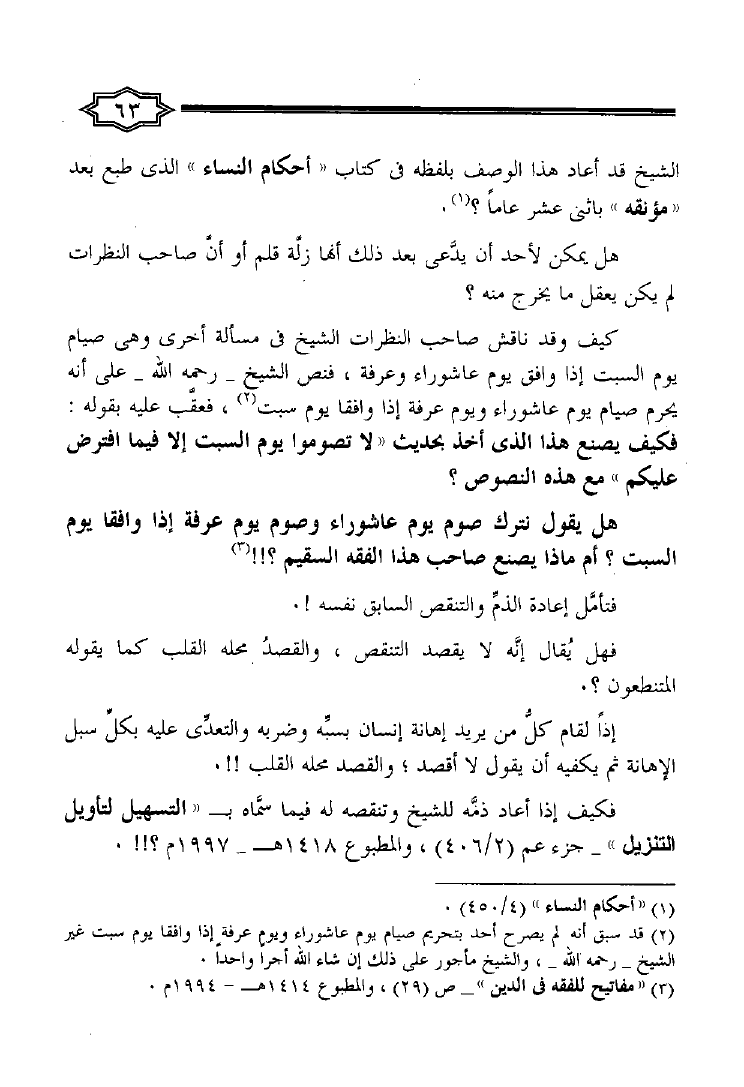 ٦٣
الشيخ قد أعاد هذا الوصف بلفظه فى كتاب « أحكام النساء » الذى طبع بعد
« مؤنقه » باثنى عشر عاماً ؟(١) .
هل يمكن لأحد أن يدَّعى بعد ذلك أنها زلَّة قلم أو أنَّ صاحب النظرات
لم يكن يعقل ما يخرج منه ؟
كيف وقد ناقش صاحب النظرات الشيخ فى مسألة أخرى وهى صيام
يوم السبت إذا وافق يوم عاشوراء وعرفة ، فنص الشيخ _ رحمه الله _ على أنه
يحرم صيام يوم عاشوراء ويوم عرفة إذا وافقا يوم سبت(٢) ، فعقَّب عليه بقوله :
فكيف يصنع هذا الذى أخذ بحديث « لا تصوموا يوم السبت إلا فيما افترض
عليكم » مع هذه النصوص ؟
هل يقول نترك صوم يوم عاشوراء وصوم يوم عرفة إذا وافقا يوم
السبت ؟ أم ماذا يصنع صاحب هذا الفقه السقيم ؟!!(٣)
فتأمَّل إعادة الذمِّ والتنقص السابق نفسه ! .
فهل يُقال إنَّه لا يقصد التنقص ، والقصدُ محله القلب كما يقوله
المتنطعون ؟ .
إذاً لقام كلُّ من يريد إهانة إنسان بسبِّه وضربه والتعدِّى عليه بكلِّ سبل
الإهانة ثم يكفيه أن يقول لا أقصد ؛ والقصد محله القلب !! .
فكيف إذا أعاد ذمَّه للشيخ وتنقصه له فيما سمَّاه بـ « التسهيل لتأويل
التنزيل » _ جزء عم (٤٠٦/٢) ، والمطبوع ١٤١٨هـ _ ١٩٩٧م ؟!! .
(١) « أحكام النساء » (٤٥٠/٤) .
(٢) قد سبق أنه لم يصرح أحد بتحريم صيام يوم عاشوراء ويوم عرفة إذا وافقا يوم سبت غير
الشيخ _ رحمه الله _ ، والشيخ مأجور على ذلك إن شاء الله أجراً واحداً .
(٣) « مفاتيح للفقه فى الدين » _ ص (٢٩) ، والمطبوع ١٤١٤هـ - ١٩٩٤م .